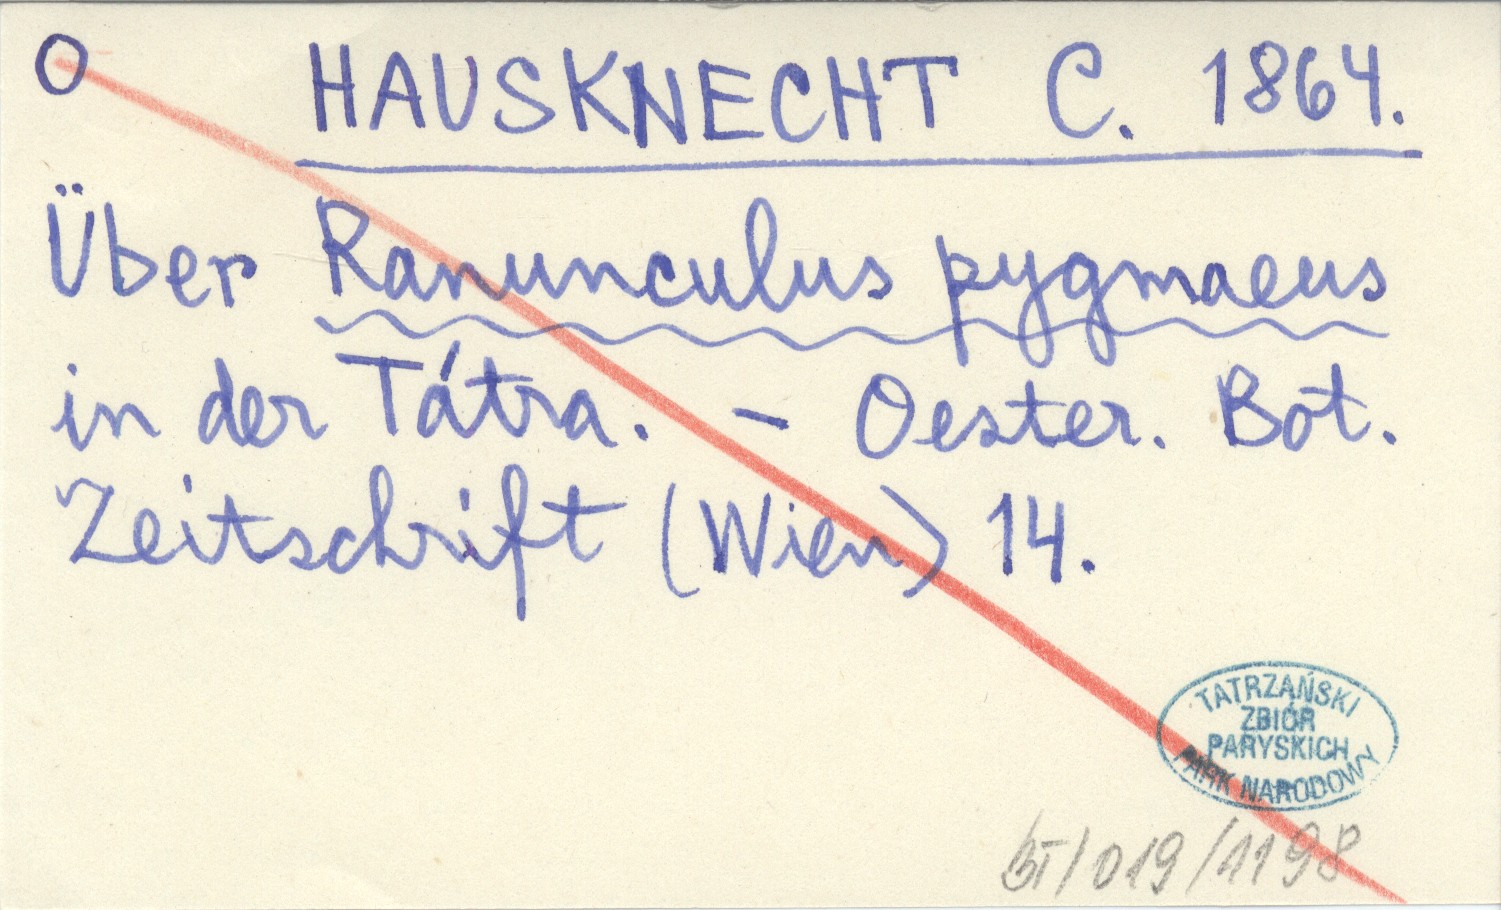 O HAUSKNECHT C. 1864.
Über Ranunculus pygmaeus
in der Tátra. - Oester. Bot.
Zeitschrift (Wien) 14.
TATRZAŃSKI
ZBIÓR
PARYSKICH
PARK NARODOWY
BI/019/1198